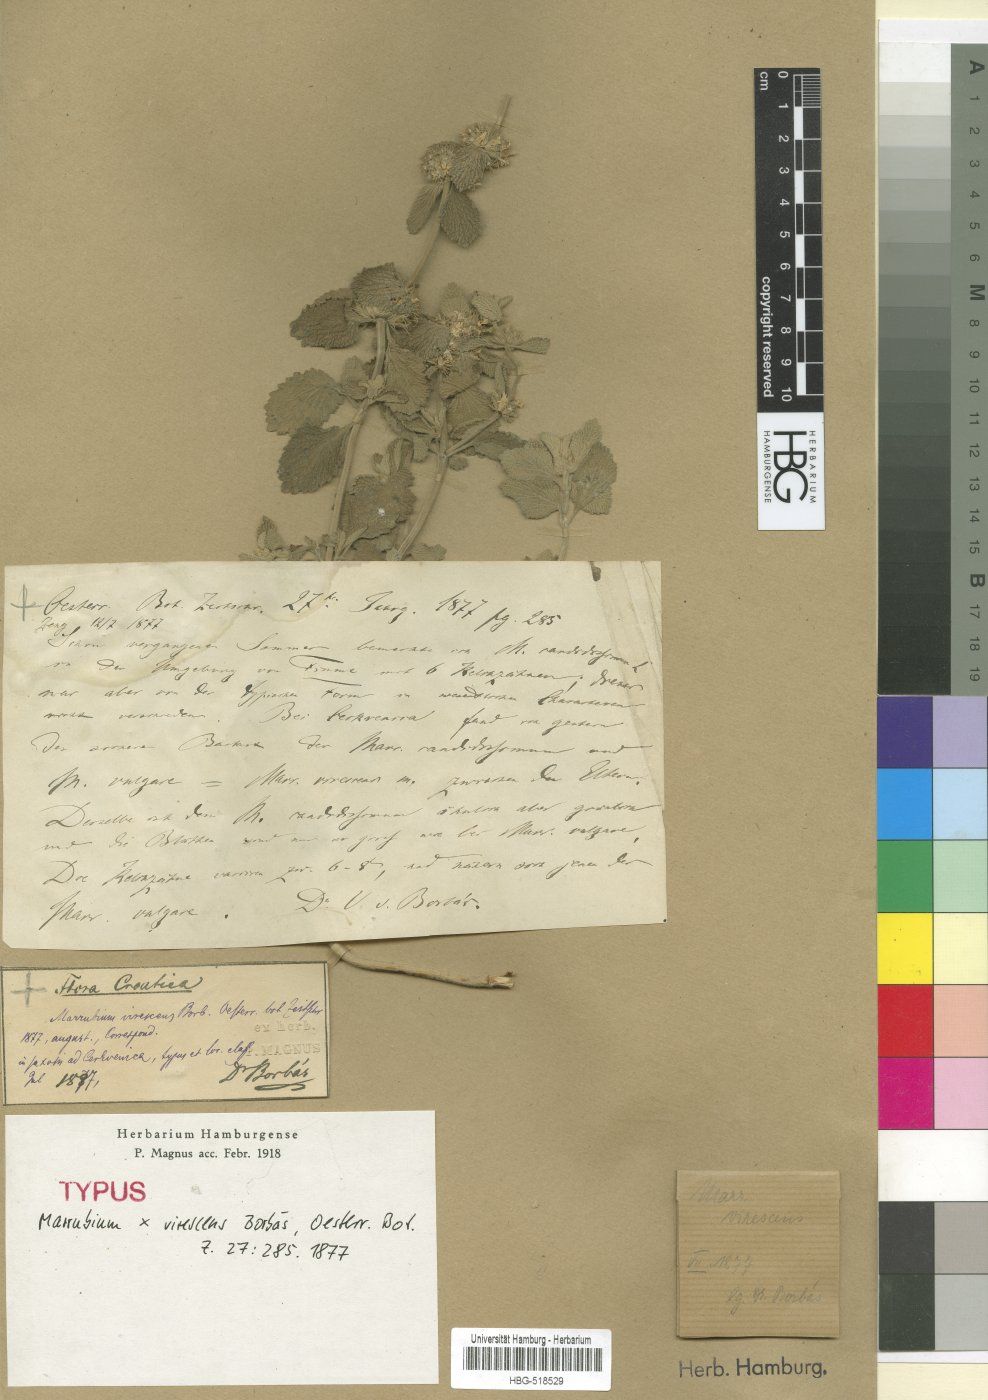 cm
0
1
2
3
4
5
6
7
8
9
10
copyright reserved
HBG
HERBARIUM
HAMBURGENSE
A
1
2
3
4
5
6
M
8
9
10
11
12
13
14
15
B
17
18
19
Oesterr. Bot. 27 1877 pg. 285
12/7 1877
Schon vergangenen Sommer bemerkte M. candidissimum
in der Umgebung von Fiume mit 6 Kelchzähnen,
nur aber von der typischen Form in wesentlichen Characteren
Bei Cerkvenica fand
der Marr. candidissimum und
M. vulgare = Marr. virescens m. zwischen den Eltern.
Derselbe ist dem M. candidissimum ähnlich aber
und die Blüthen sind nur so groß wie bei Marr. vulgare,
Die Kelchzähne variiren 6-8, und jenen der
Marr. vulgare. Dr. V. v. Borbás.
Flora Croatica
Marrubium virescens Borb. Oesterr. bot. Zeitschr.
1877, august., Correspond.
in saxosis ad Cerkvenica, typus et loc. class.
Jul 1877,
Dr Borbás
ex herb.
P. MAGNUS
Herbarium Hamburgense
P. Magnus acc. Febr. 1918
TYPUS
Marrubium × virescens Borbás, Oesterr. Bot.
Z. 27: 285. 1877
Universität Hamburg - Herbarium
HBG-518529
Marr.
virescens
Borbás
Herb. Hamburg.